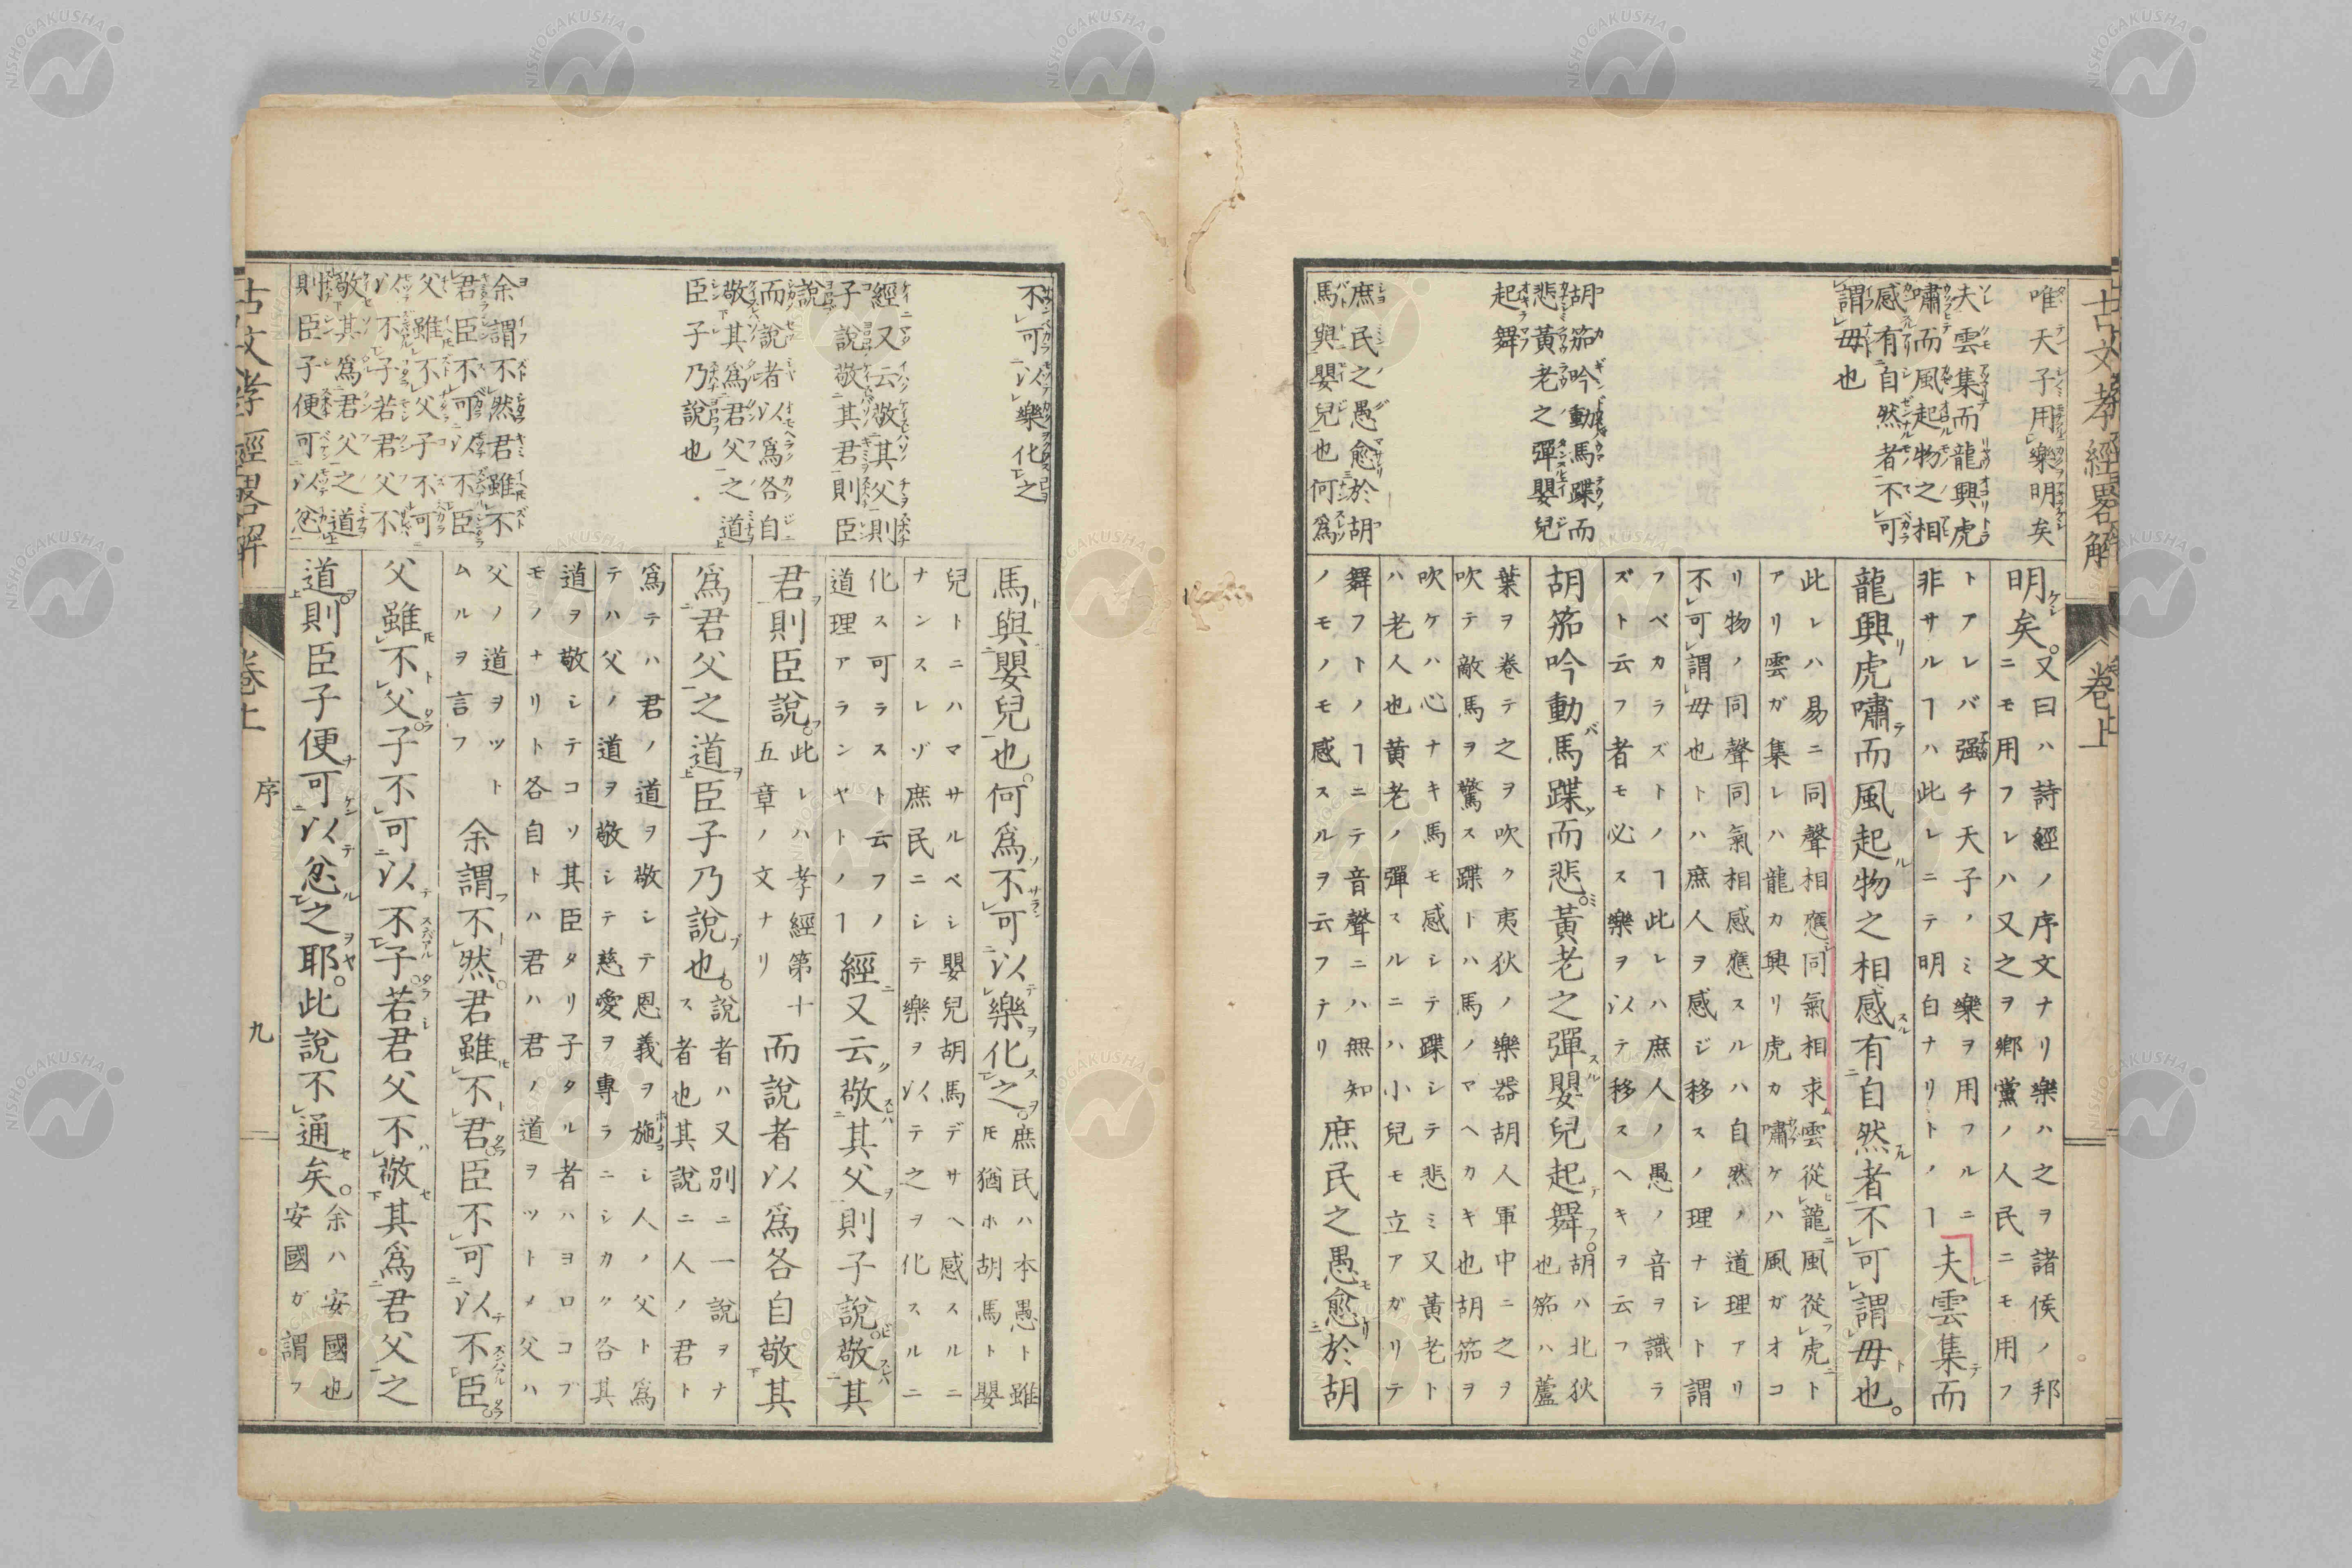 古文孝經畧解
卷上
唯天子用樂明矣
夫雲集而龍興虎
嘯而風起物之相
感有自然者不可
謂毋也
胡笳吟動馬蹀而
悲黃老之彈嬰兒
起舞
庶民之愚愈於胡
馬與嬰兒也何爲
明矣。
又曰ハ詩經ノ序文ナリ樂ハ之ヲ諸侯ノ邦
ニモ用フレハ又之ヲ鄉黨ノ人民ニモ用フ
トアレバ强チ天子ノミ樂ヲ用フルニ
非サルヿハ此レニテ明白ナリトノヿ
夫雲集而
龍興虎嘯而風起物之相感有自然者不可謂毋也。
此レハ易ニ同聲相應同氣相求ム雲從龍風從虎ト
アリ雲ガ集レハ龍カ興リ虎カ嘯ケハ風ガオコ
リ物ノ同聲同氣相感應スルハ自然ノ道理アリ
不可謂毋也トハ庶人ヲ感ジ移スノ理ナシト謂
フベカラズトノヿ此レハ庶人ノ愚ノ音ヲ識ラ
ズト云フ者モ必ス樂ヲ以テ移スヘキヲ云フ
胡笳吟動馬蹀而悲。黃老之彈嬰兒起舞。
胡ハ北狄
也笳ハ蘆
葉ヲ卷テ之ヲ吹ク夷狄ノ樂器胡人軍中ニ之ヲ
吹テ敵馬ヲ驚ス蹀トハ馬ノマヘカキ也胡笳ヲ
吹ケハ心ナキ馬モ感シテ蹀シテ悲ミ又黃老ト
ハ老人也黃老ノ彈スルニハ小兒モ立アガリテ
舞フトノヿニテ音聲ニハ無知
ノモノモ感スルヲ云フナリ
庶民之愚愈於胡
不可以樂化之
經又云敬其父則
子說敬其君則臣
說
而說者以爲各自
敬其爲君父之道
臣子乃說也
余謂不然君雖不
君臣不可以不臣
父雖不父子不可
以不子若君父不
敬其爲君父之道
則臣子便可以忿
馬與嬰兒也。何爲不可以樂化之。
庶民ハ本愚ト雖
𪜈猶ホ胡馬ト嬰
兒トニハマサルベシ嬰兒胡馬デサヘ感スルニ
ナンスレゾ庶民ニシテ樂ヲ以テ之ヲ化スルニ
化ス可ラスト云フノ
道理アランヤトノヿ
經又云敬其父則子說。敬其
君則臣說。
此レハ孝經第十
五章ノ文ナリ
而說者以爲各自敬其
爲君父之道臣子乃說也。
說者ハ又別ニ一說ヲナ
ス者也其說ニ人ノ君ト
爲テハ君ノ道ヲ敬シテ恩義ヲ施シ人ノ父ト爲
テハ父ノ道ヲ敬シテ慈愛ヲ專ラニシカク各其
道ヲ敬シテコソ其臣タリ子タル者ハヨロコブ
モノナリト各自トハ君ハ君ノ道ヲツトメ父ハ
父ノ道ヲツト
ムルヲ言フ
余謂不然。君雖不君。臣不可以不臣。
父雖不父。子不可以不子。若君父不敬其爲君父之
道。則臣子便可以忿之耶。此說不通矣。
余ハ安國也
安國ガ謂フ
古文孝經畧解
卷上
序
九
NISHOGAKUSHA